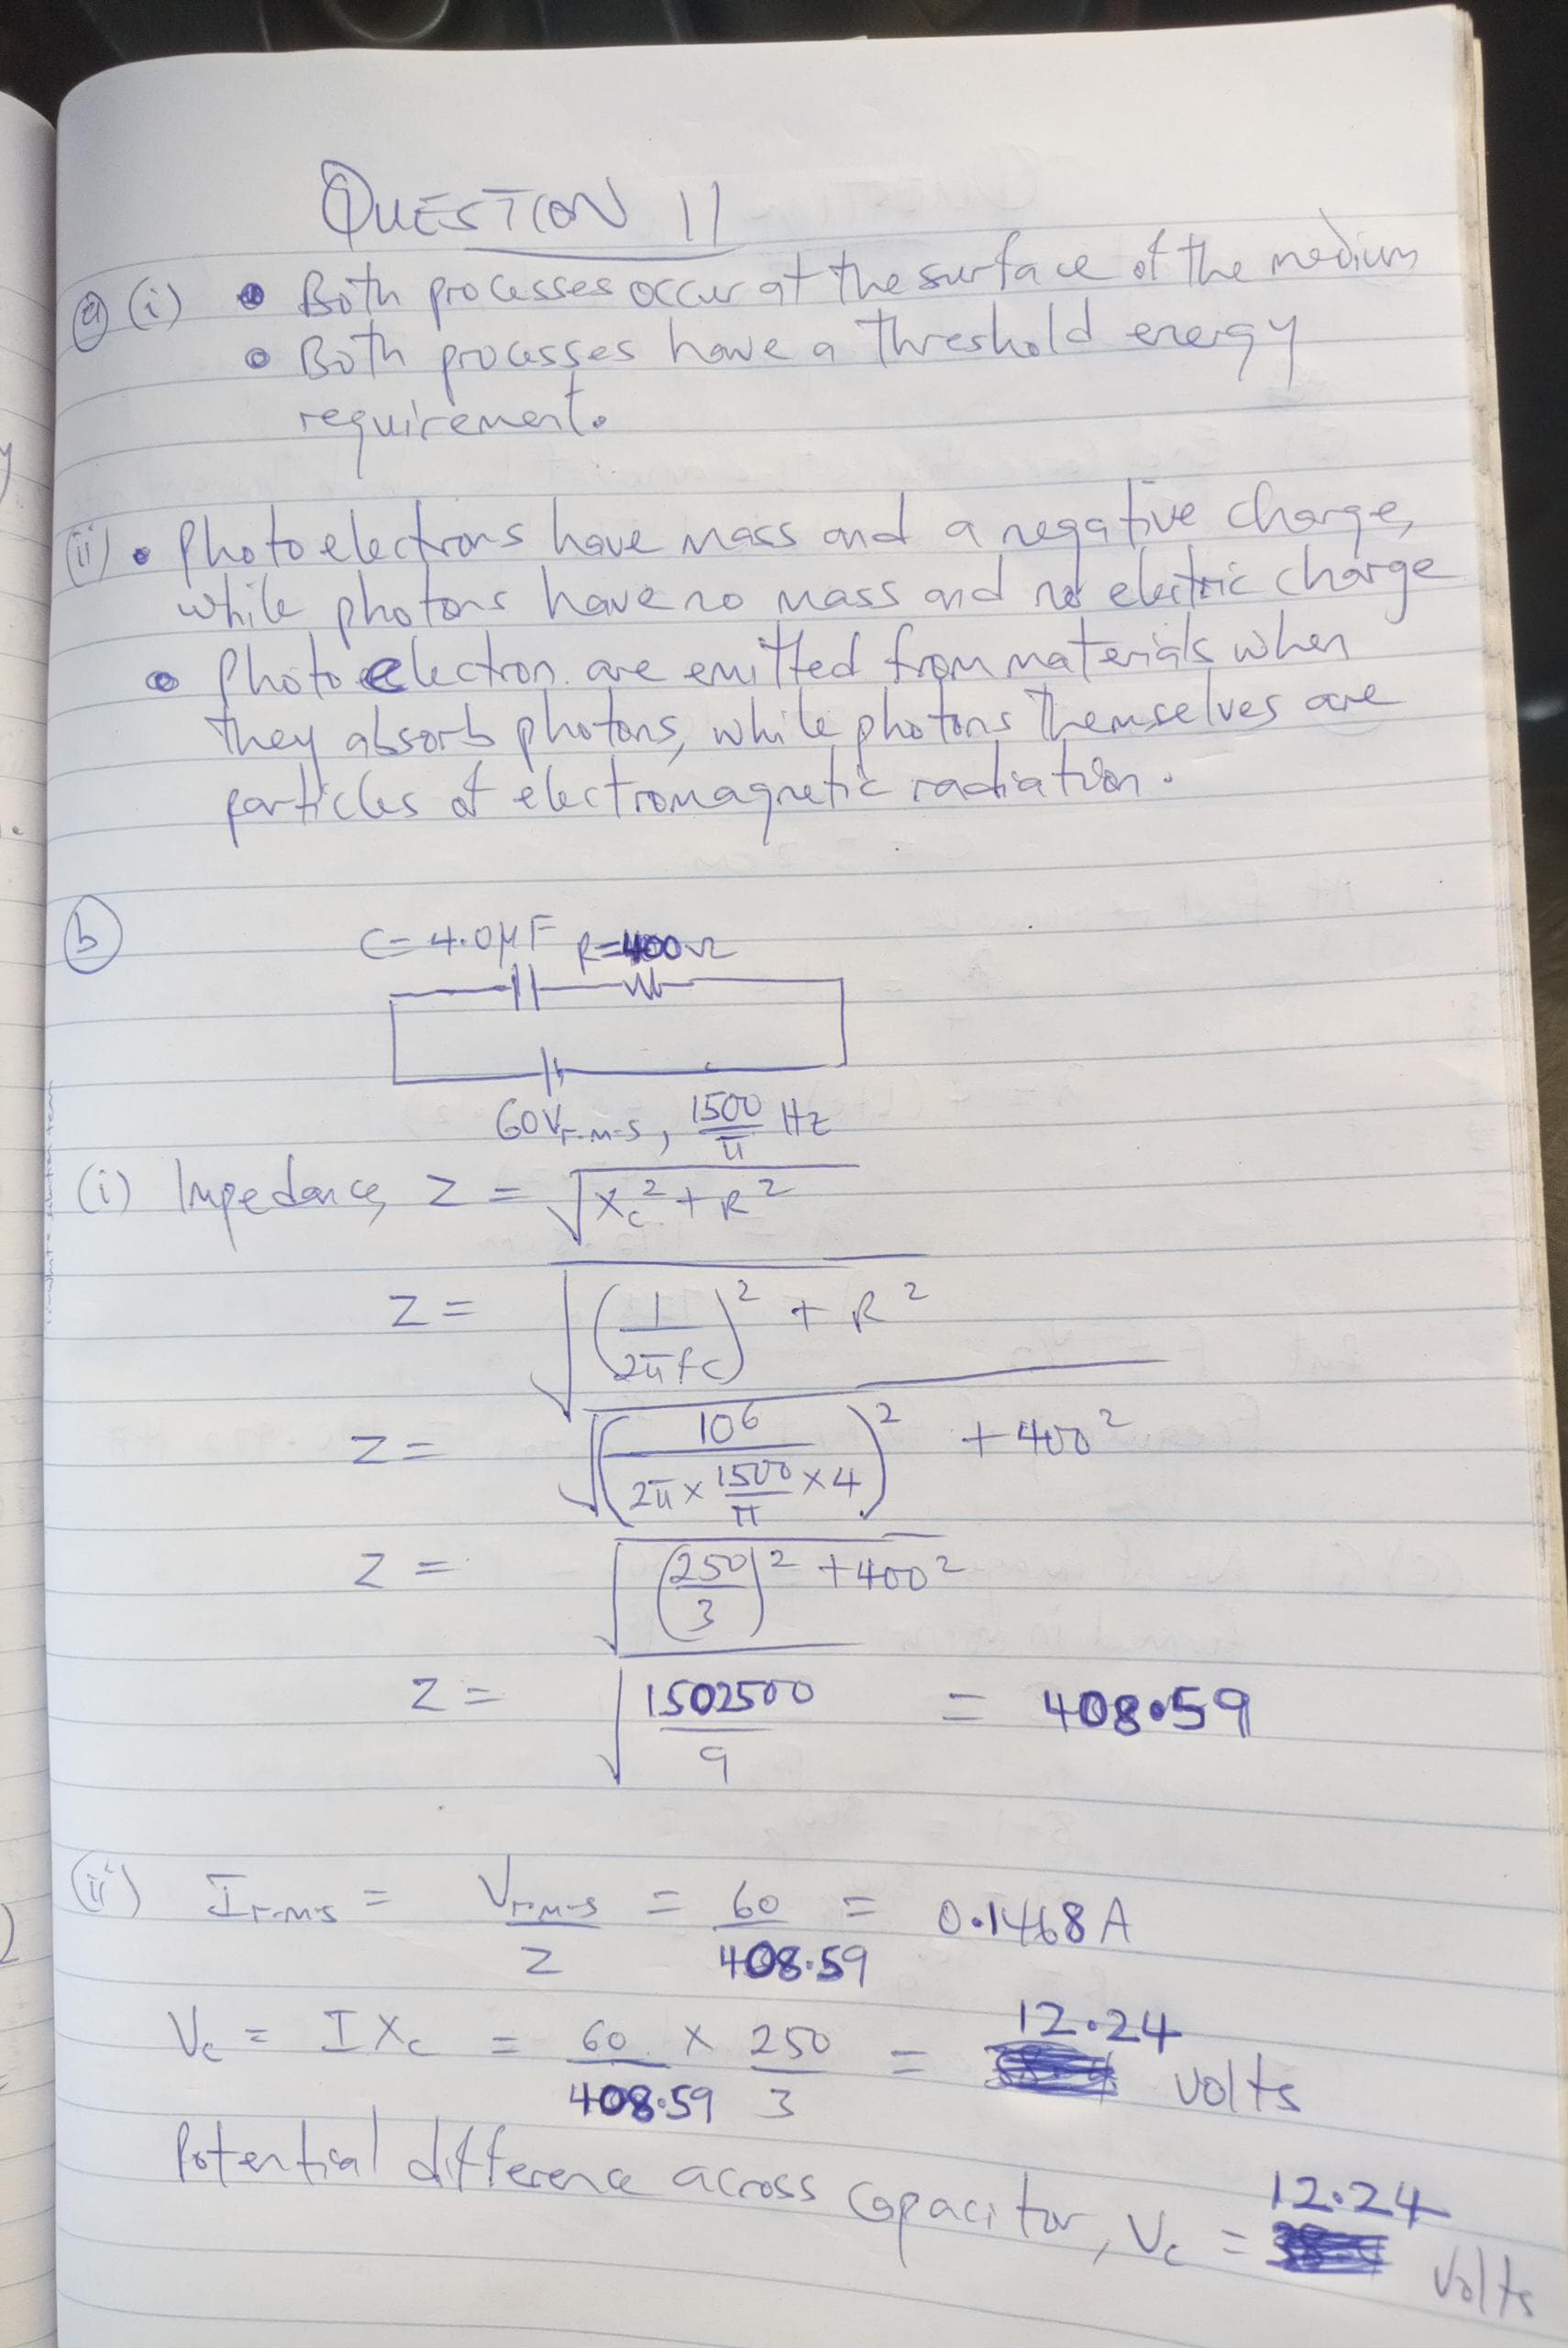 QUESTION 11
(a) (i) • Both processes occur at the surface of the medium
• Both processes have a threshold energy
requirement.
(ii) • Photoelectrons have mass and a negative charge,
while photons have no mass and no electric charge
• Photoelectron are emitted from materials when
they absorb photons, while photons themselves are
particles of electromagnetic radiation.
(b)
C = 4.0μF R=400Ω
60Vr.m.s, 1500/π Hz
(i) Impedance, Z = √(Xc² + R²)
Z = √((1/2πfc)² + R²)
Z = √((10⁶/(2π × 1500/π × 4))² + 400²)
Z = √((250/3)² + 400²)
Z = √(1502500/9) = 408.59
(ii) Ir.m.s = Vr.m.s/Z = 60/408.59 = 0.1468A
Vc = IXc = 60/408.59 × 250/3 = 12.24 volts
Potential difference across capacitor, Vc = 12.24 volts